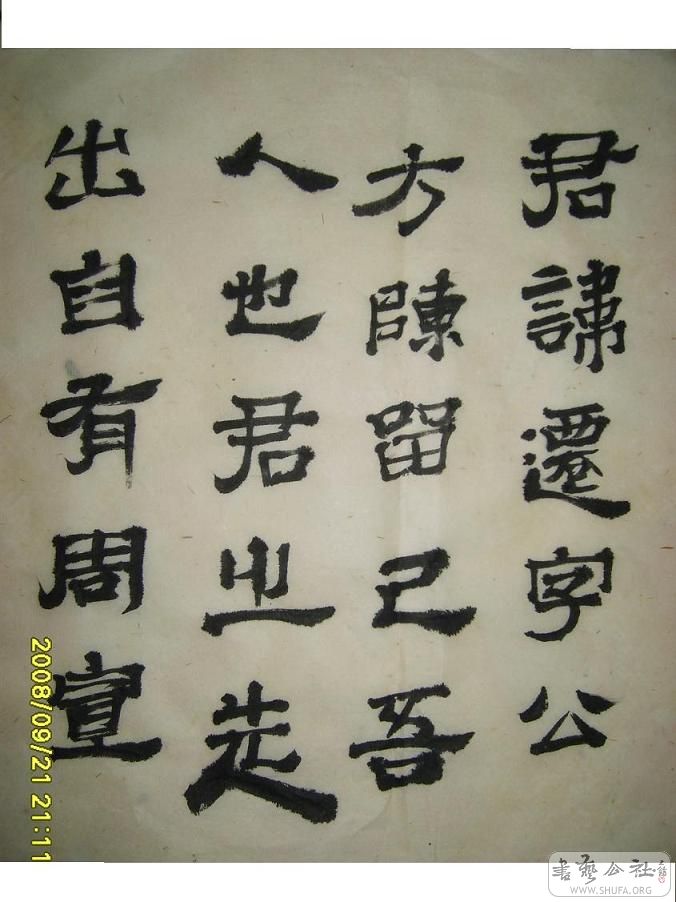 君諱遷字公
方陳留己吾
人也君之先
出自有周宣
2008/09/21 21:11
書藝公社
WWW.SHUFA.ORG